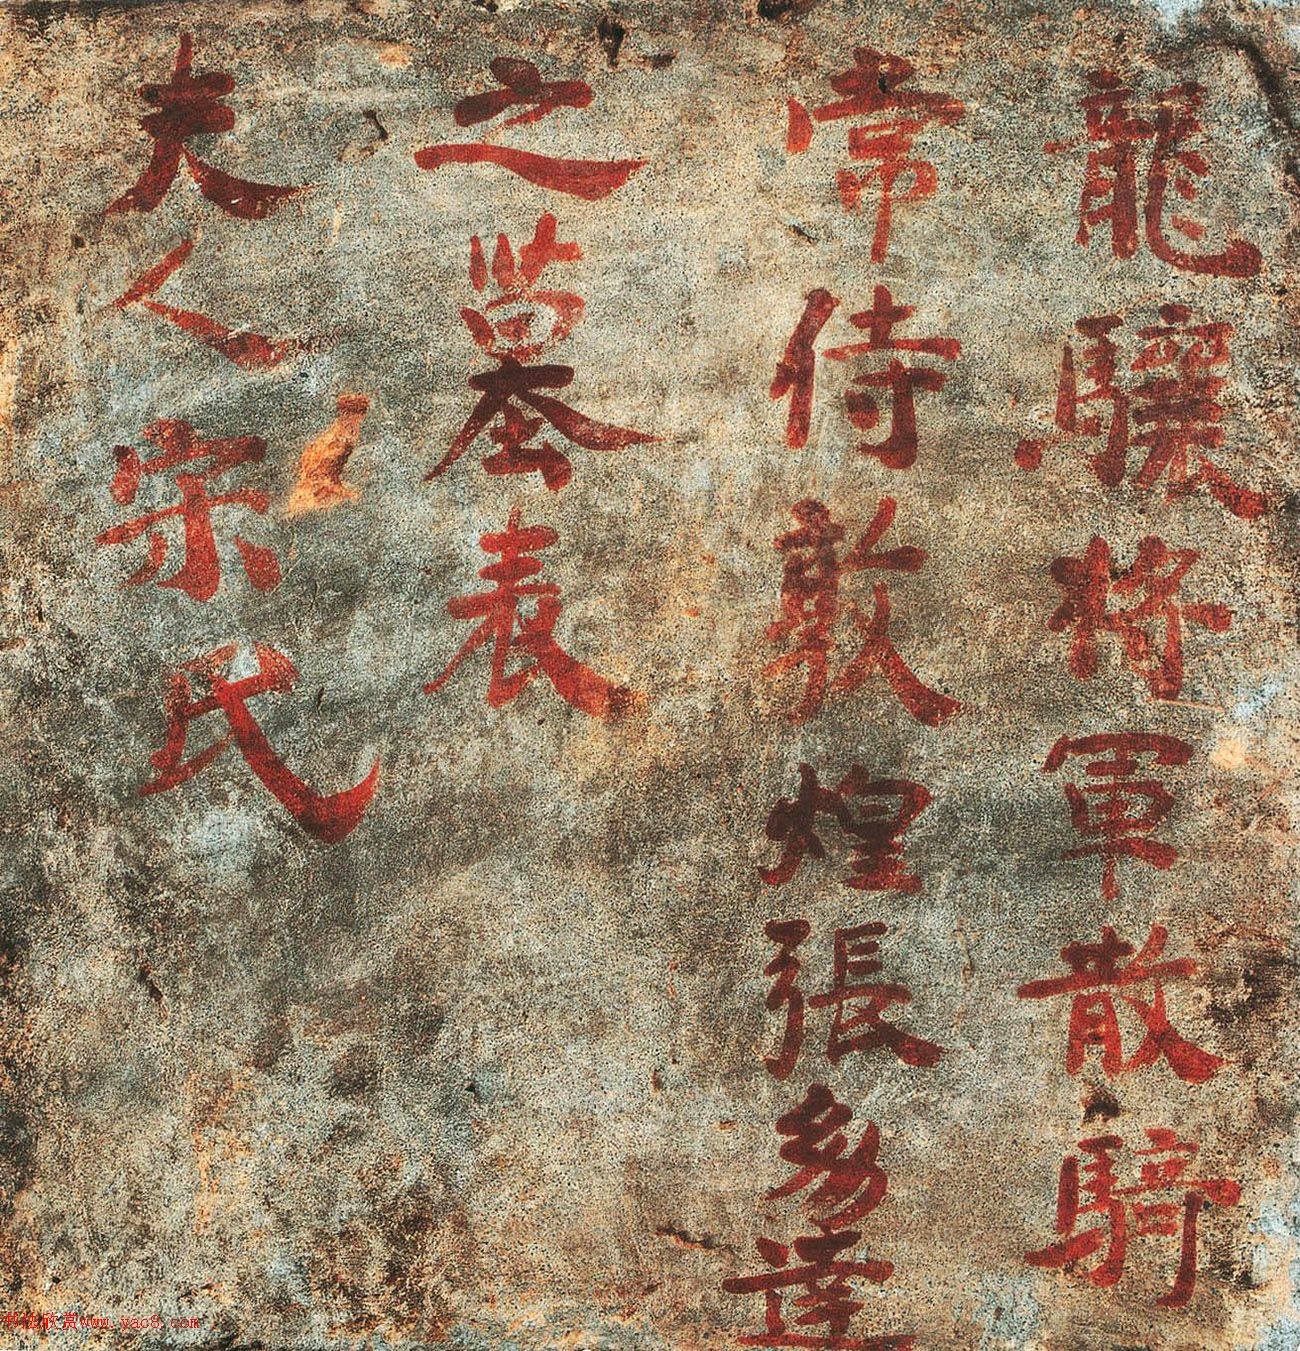 龍驤將軍散騎
常侍敦煌張幼達
之墓表
夫人宋氏
书法欣赏www.yac8.com